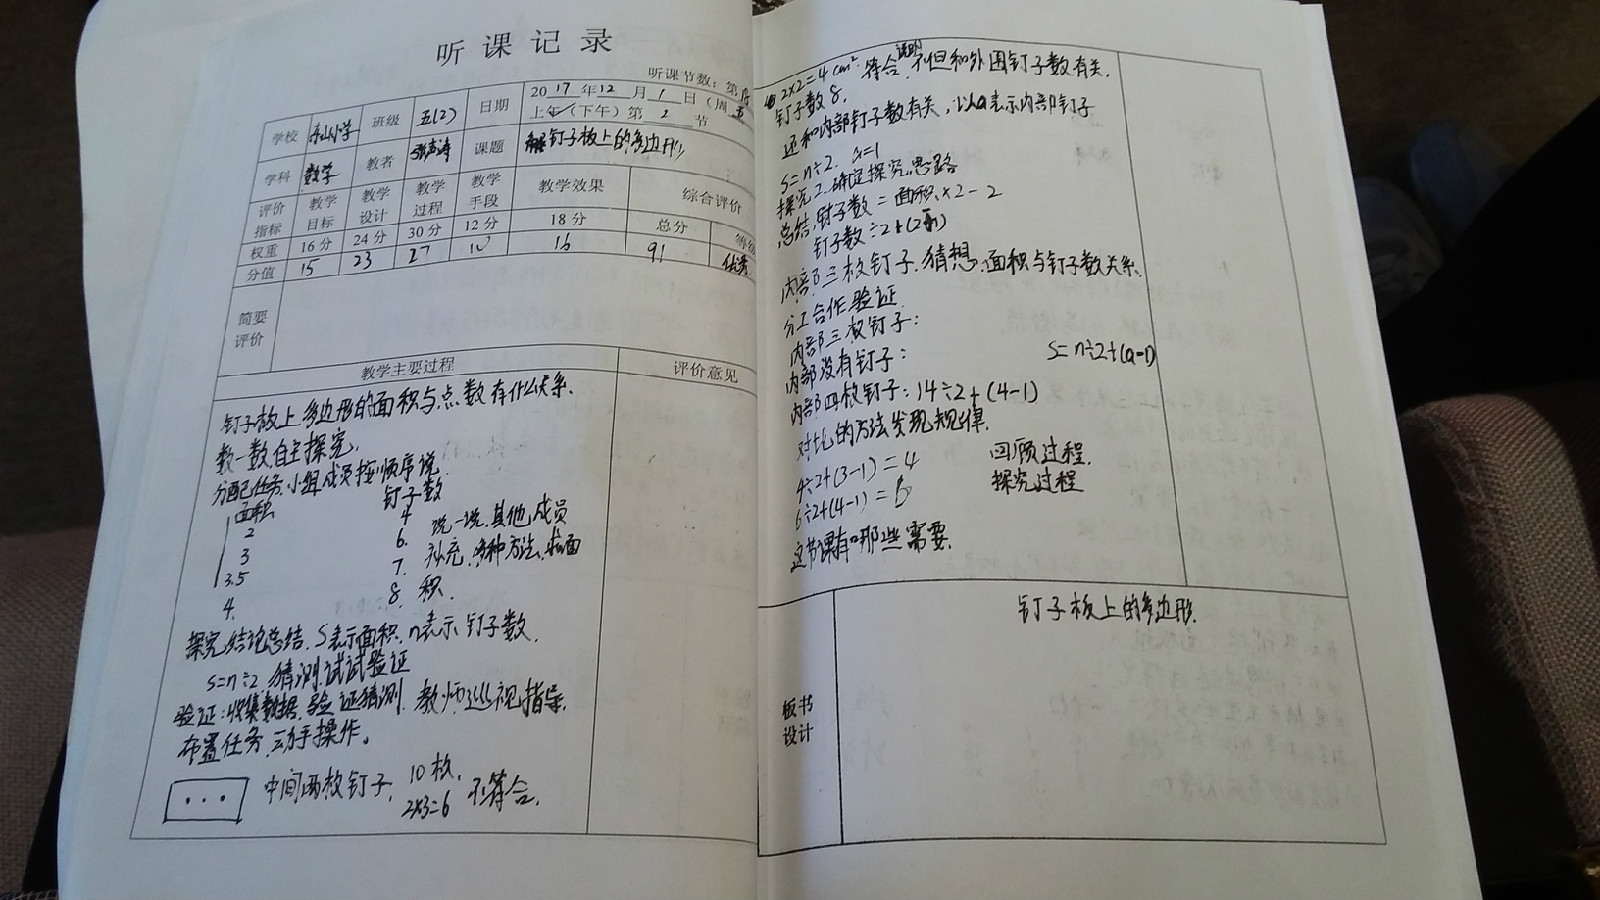 听课记录
听课节数：第
学校 东山小学 班级 五(2) 日期 2017年12月1日（周五
上午（下午）第2节
学科 数学 教者 课题 钉子板上的多边形
评价指标 教学目标 教学设计 教学过程 教学手段 教学效果 综合评价
权重 16分 24分 30分 12分 18分 总分
分值 15 23 27 10 16 91 优秀
简要评价
教学主要过程 评价意见
钉子板上多边形的面积与点数有什么关系.
数一数自主探究.
分配任务.小组成员按顺序说.
面积 钉子数
1 4
2 6. 说一说.其他成员
3 7. 补充.多种方法.求面
3.5 8. 积.
4.
探究结论总结. S表示面积. n表示钉子数.
S=n÷2. 猜测.试试验证
验证:收集数据.验证猜测. 教师巡视指导.
布置任务.动手操作。
中间两枚钉子. 10枚.
2×3=6 不符合.
2×2=4cm². 符合. 不但和外围钉子数有关.
钉子数8.
还和内部钉子数有关，以a表示内部钉子
S=n÷2. a=1
探究2.确定探究思路
总结.钉子数=面积×2-2
钉子数÷2+
内部三枚钉子.猜想.面积与钉子数关系.
分工合作验证.
内部三枚钉子：
内部没有钉子： S=n÷2+(a-1)
内部四枚钉子：14÷2+(4-1)
对比的方法发现规律.
4÷2+(3-1)=4 回顾过程.
6÷2+(4-1)=6 探究过程
这节课有哪些需要.
板书设计
钉子板上的多边形.